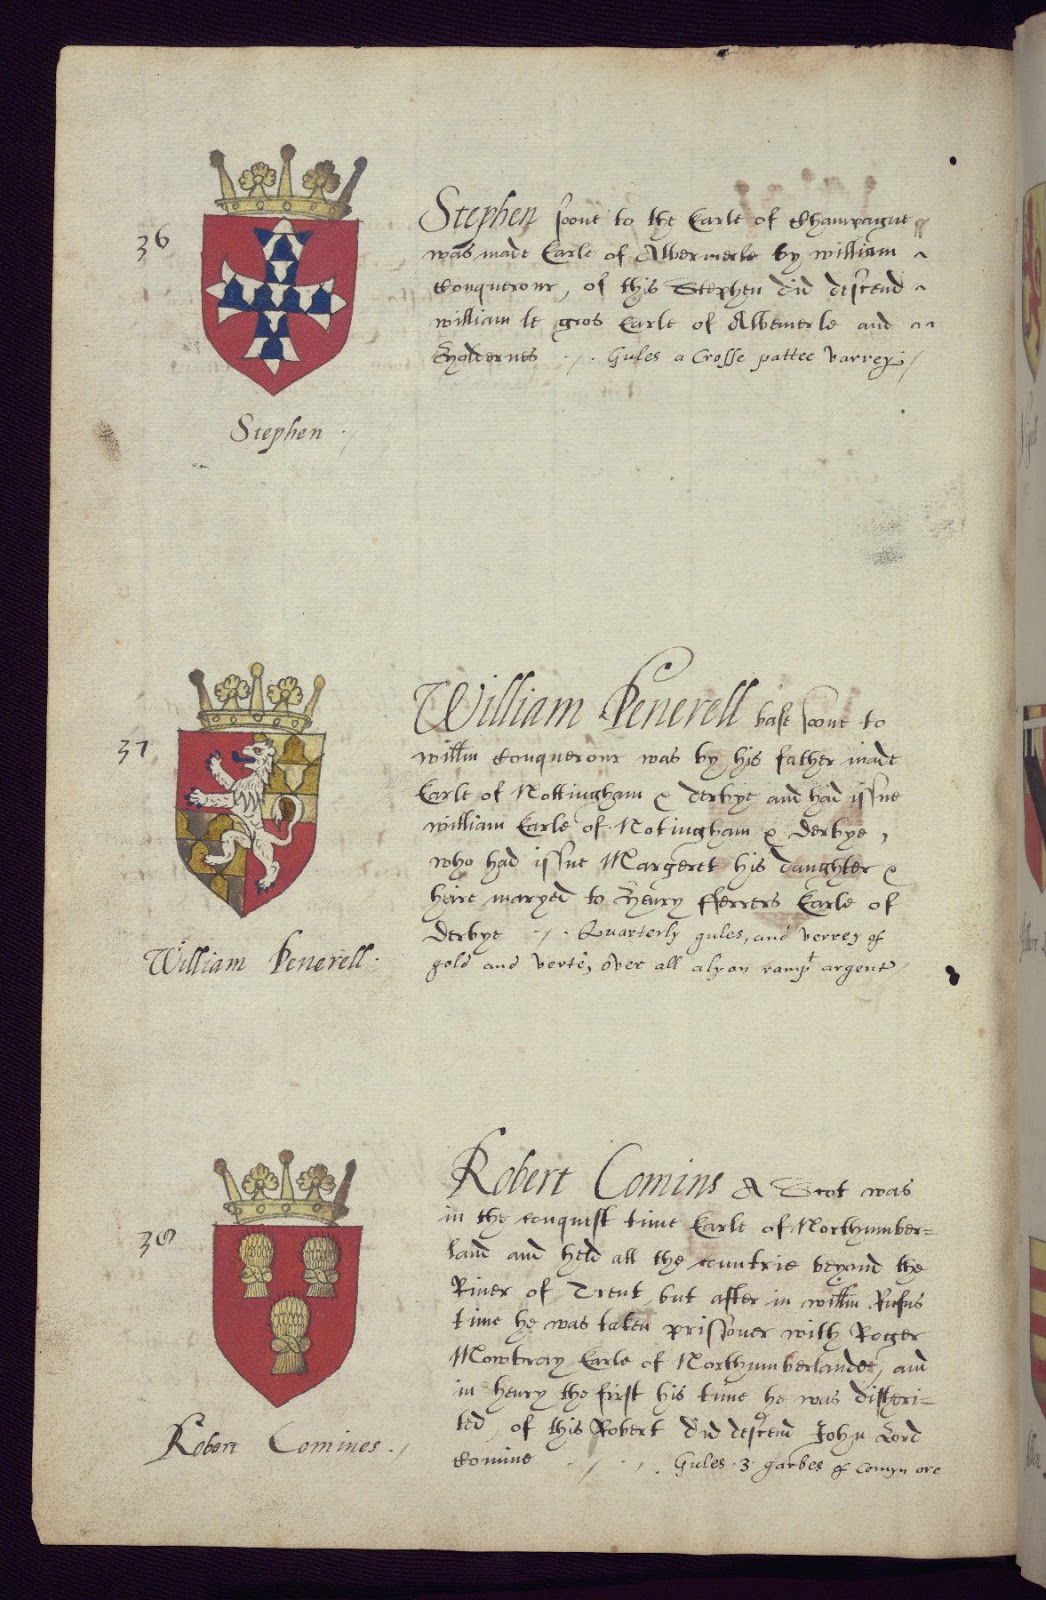 36
Stephen sone to the Earle of Champagne
was made Earle of Albermerle by william
Conquerour, of this Stephen did descend
william le gros Earle of Albemerle and
Holdernes . Gules a Crosse pattee varrey
Stephen
37
William Peverell base sone to
willm Conquerour was by his father made
Earle of Nottingham & Derbye and had issue
william Earle of Notingham & Derbye,
who had issue Margeret his daughter &
heire maryed to Henry fferrers Earle of
Derbye . Quarterly gules, and verrey of
gold and verte, over all a lyon rampt argent
William Peverell
38
Robert Comins A Scot was
in the conquest time Earle of Northumber=
land and held all the countrie beyond the
River of Trent, but after in willm Rufus
time he was taken prissoner with Roger
Mowbray Earle of Northumberlande, and
in henry the first his time he was disheri=
ted, of this Robert did descend John Lord
Comine . Gules 3 garbes of comyn ore
Robert Comines